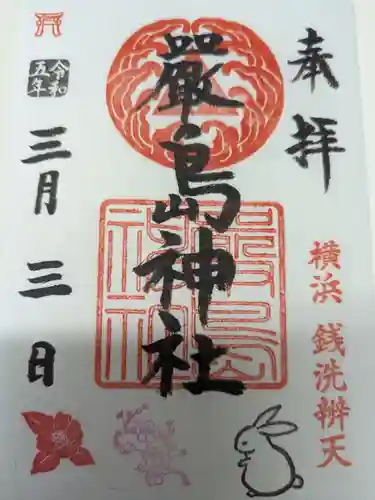 奉拝
横浜 銭洗辨天
嚴島神社
令和
五年
三月三日